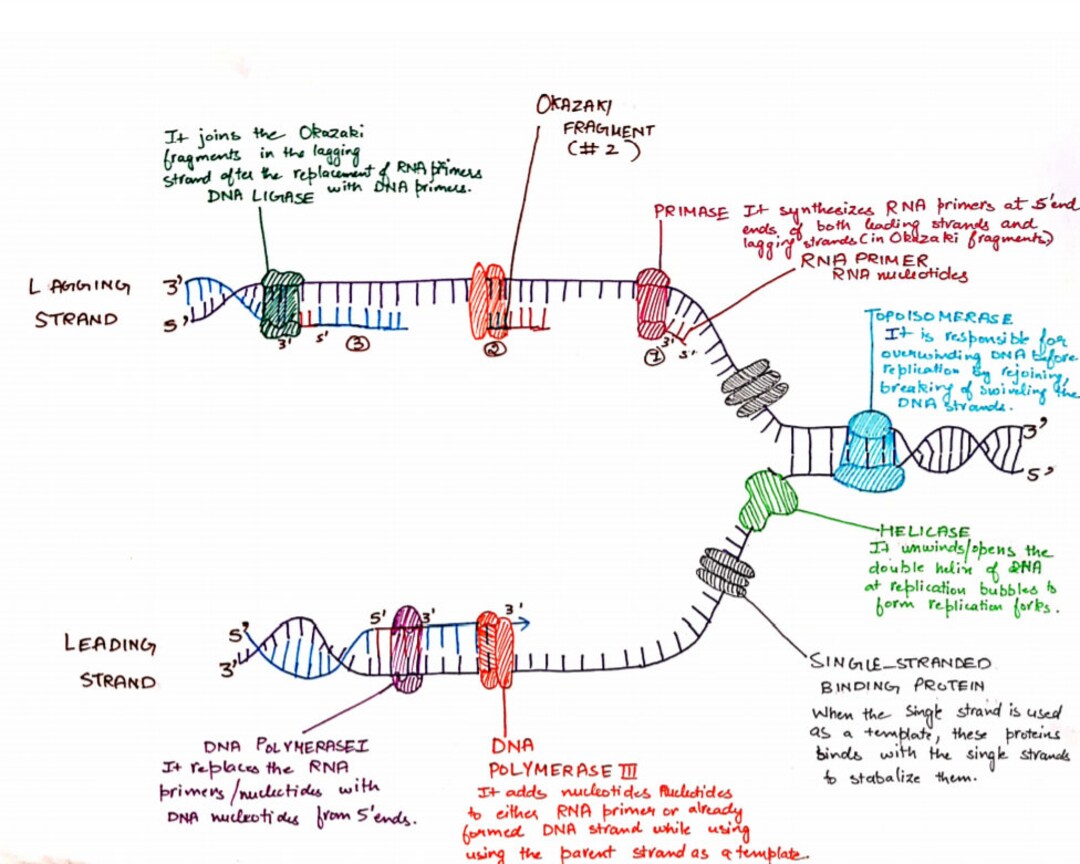 OKAZAKI
FRAGMENT
(# 2)
It joins the Okazaki
fragments in the lagging
strand after the replacement of RNA primers
with DNA primers.
DNA LIGASE
PRIMASE It synthesizes RNA primers at 5'end
ends of both leading strands and
lagging strands (in Okazaki fragments)
RNA PRIMER
RNA nucleotides
LAGGING
STRAND
3'
5'
3'
5'
③
②
①
3'
5'
TOPOISOMERASE
It is responsible for
overwinding DNA before
replication by rejoining,
breaking of swiveling the
DNA strands.
3'
5'
HELICASE
It unwinds/opens the
double helix of DNA
at replication bubbles to
form replication forks.
LEADING
STRAND
5'
3'
5'
3'
3'
SINGLE_STRANDED
BINDING PROTEIN
When the single strand is used
as a template, these proteins
binds with the single strands
to stabalize them.
DNA POLYMERASE I
It replaces the RNA
primers/nucletides with
DNA nucleotides from 5'ends.
DNA
POLYMERASE III
It adds nucleotides Nucletides
to either RNA primer or already
formed DNA strand while using
using the parent strand as a template.